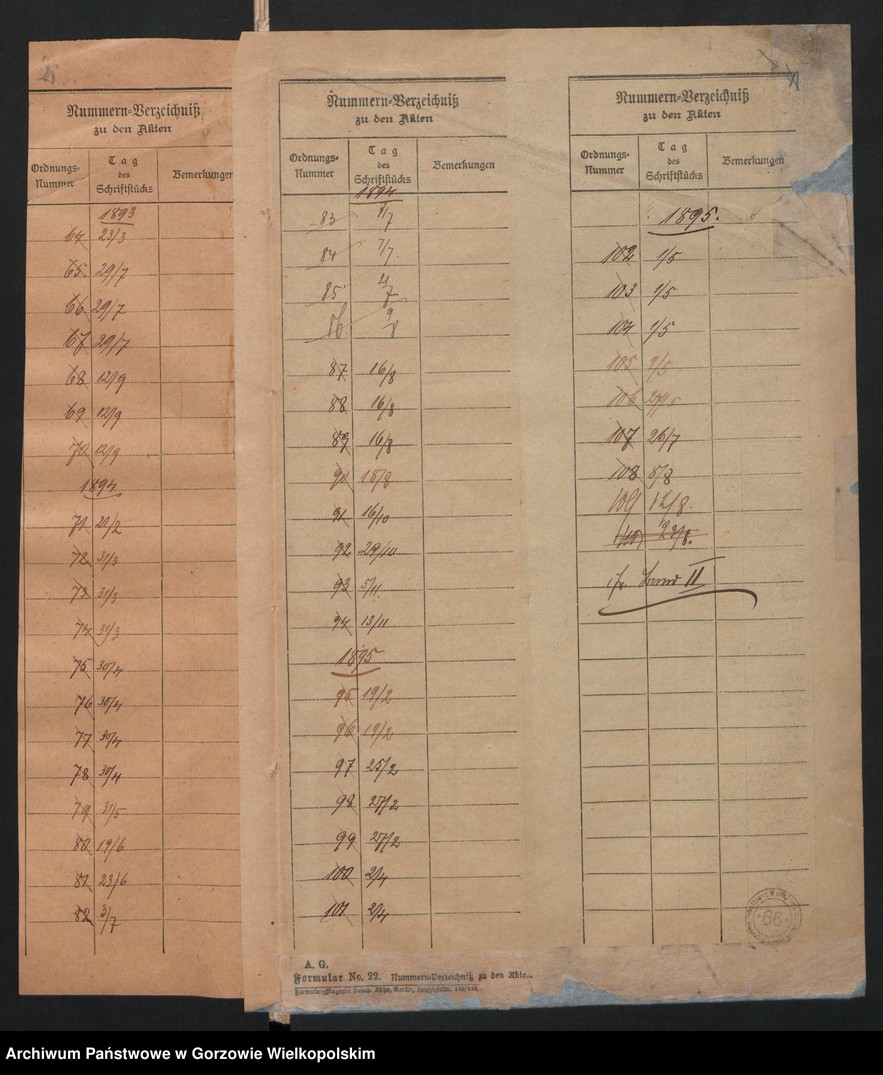 Nummern-Verzeichniß
zu den Akten
Ordnungs-Nummer Tag des Schriftstücks Bemerkungen
1893
64 23/3
65 29/7
66 29/7
67 29/7
68 12/9
69 12/9
70 12/9
1894
71 21/2
72 31/3
73 31/3
74 31/3
75 30/4
76 30/4
77 30/4
78 30/4
79 31/5
80 19/6
81 23/6
82 3/7
Nummern-Verzeichniß
zu den Akten
Ordnungs-Nummer Tag des Schriftstücks Bemerkungen
1894
83
84 7/7
85
86
87 16/8
88 16/8
89 16/8
90 18/8
91 16/10
92 29/10
93 5/11
94 13/11
1895
95 19/2
96 19/2
97 25/2
98 27/2
99 27/2
100 2/4
101 2/4
A. G.
Formular No. 22. Nummern-Verzeichniß zu den Akte...
Nummern-Verzeichniß
zu den Akten
Ordnungs-Nummer Tag des Schriftstücks Bemerkungen
1895.
102 1/5
103 1/5
104 1/5
105 9/5
106
107 26/7
108 8/8
109 12/8.
110 23/8.
II
66
Archiwum Państwowe w Gorzowie Wielkopolskim